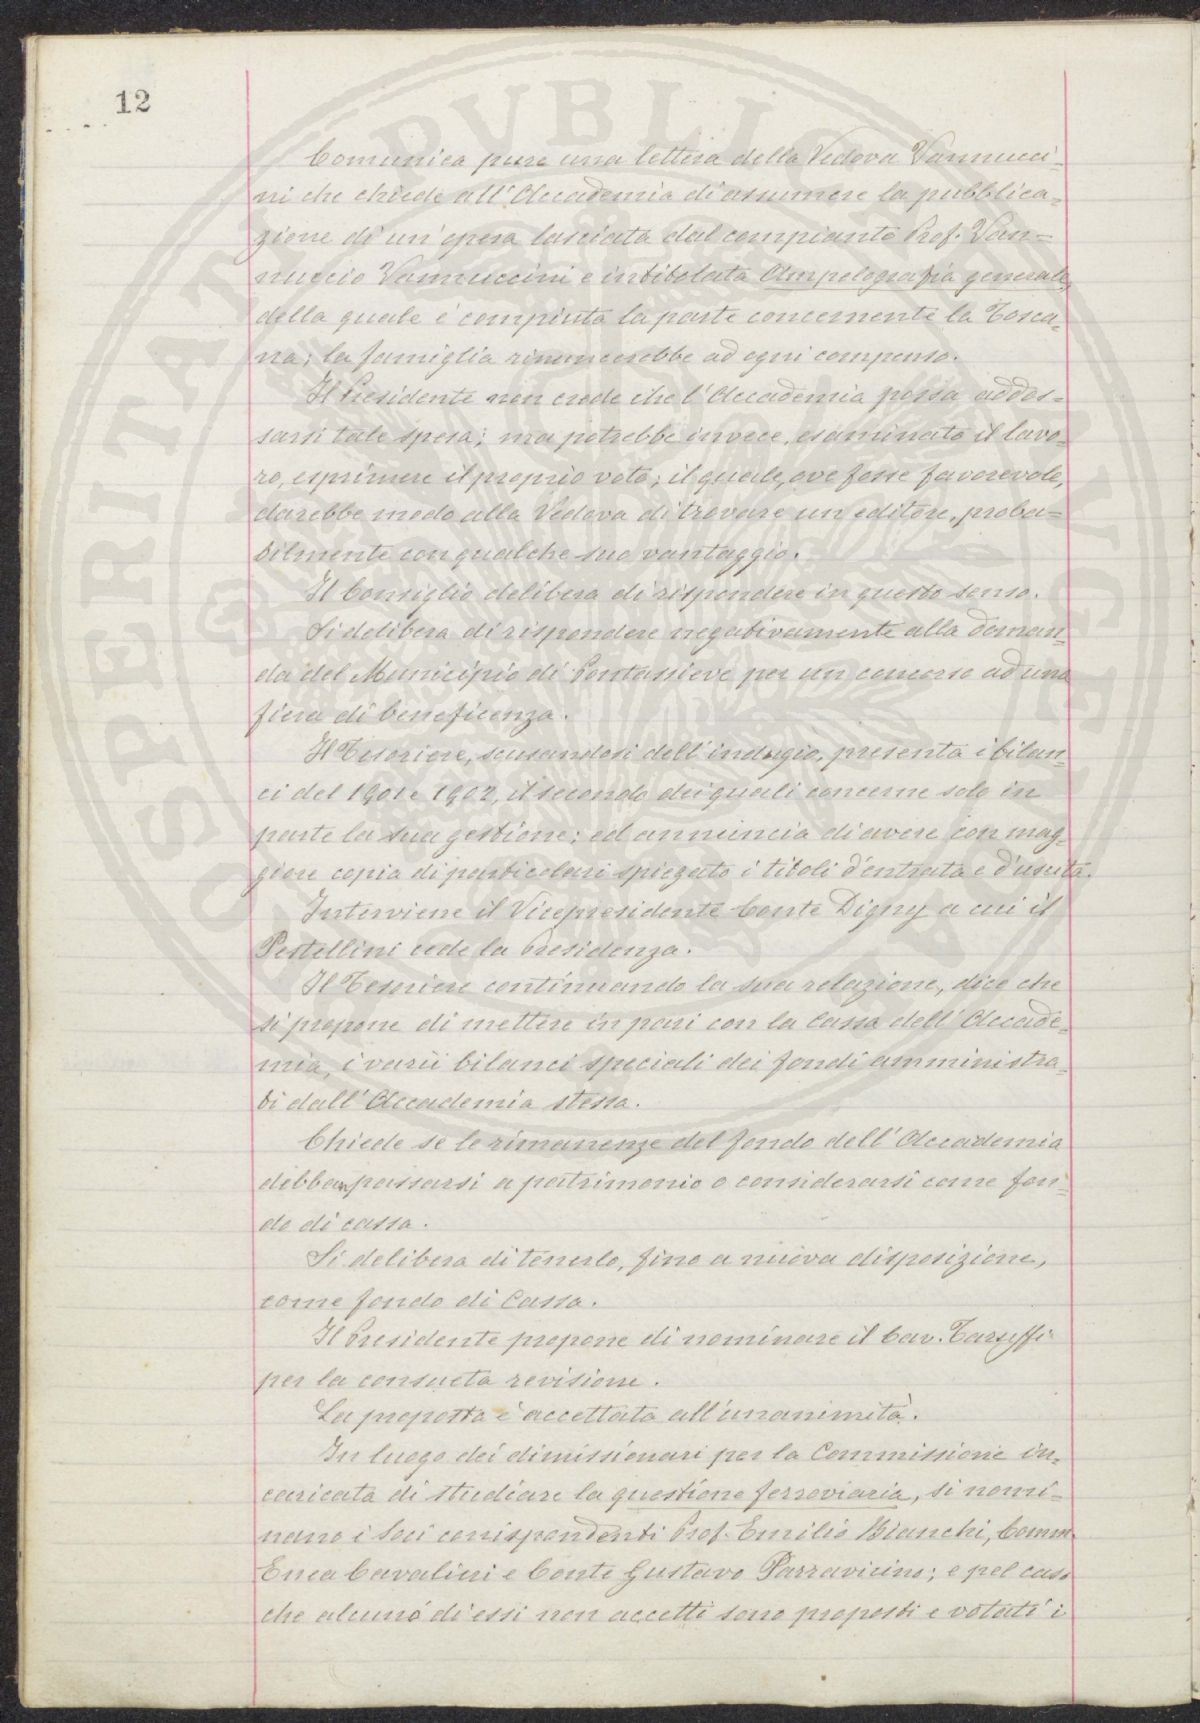 12
Comunica pure una lettera della Vedova Vannucci-
ni che chiede all'Accademia di assumere la pubblica-
zione di un'opera lasciata dal compianto Prof. Van-
nuccio Vannuccini e intitolata Ampelografia generale,
della quale è compiuta la parte concernente la Tosca-
na; la famiglia rinuncerebbe ad ogni compenso.
Il Presidente non crede che l'Accademia possa addos-
sarsi tale spesa; ma potrebbe invece, esaminato il lavo-
ro, esprimere il proprio voto; il quale, ove fosse favorevole,
darebbe modo alla Vedova di trovare un editore, proba-
bilmente con qualche suo vantaggio.
Il Consiglio delibera di rispondere in questo senso.
Si delibera di rispondere negativamente alla doman-
da del Municipio di Pontassieve per un concorso ad una
fiera di beneficenza.
Il Tesoriere, scusandosi dell'indugio, presenta i bilan-
ci del 1901 e 1902, il secondo dei quali concerne solo in
parte la sua gestione; ed annuncia di avere con mag-
giore copia di particolari spiegato i titoli d'entrata e d'uscita.
Interviene il Vicepresidente Conte Digny a cui il
Pestellini cede la Presidenza.
Il Tesoriere continuando la sua relazione, dice che
si propone di mettere in pari con la Cassa dell'Accade-
mia, i varii bilanci speciali dei fondi amministra-
ti dall'Accademia stessa.
Chiede se le rimanenze del fondo dell'Accademia
debban passarsi a patrimonio o considerarsi come fon-
do di cassa.
Si delibera di tenerlo, fino a nuova disposizione,
come fondo di Cassa.
Il Presidente propone di nominare il Cav. Targeffi
per la consueta revisione.
La proposta è accettata all'unanimità.
In luogo dei dimissionari per la Commissione in-
caricata di studiare la questione ferroviaria, si nomi-
nano i Soci corrispondenti Prof. Emilio Bianchi, Comm.
Enea Cavalieri e Conte Gustavo Parravicino; e pel caso
che alcuno di essi non accetti sono proposti e votati i
PVBLICAE
PROSPERITATIS AVGENDAE